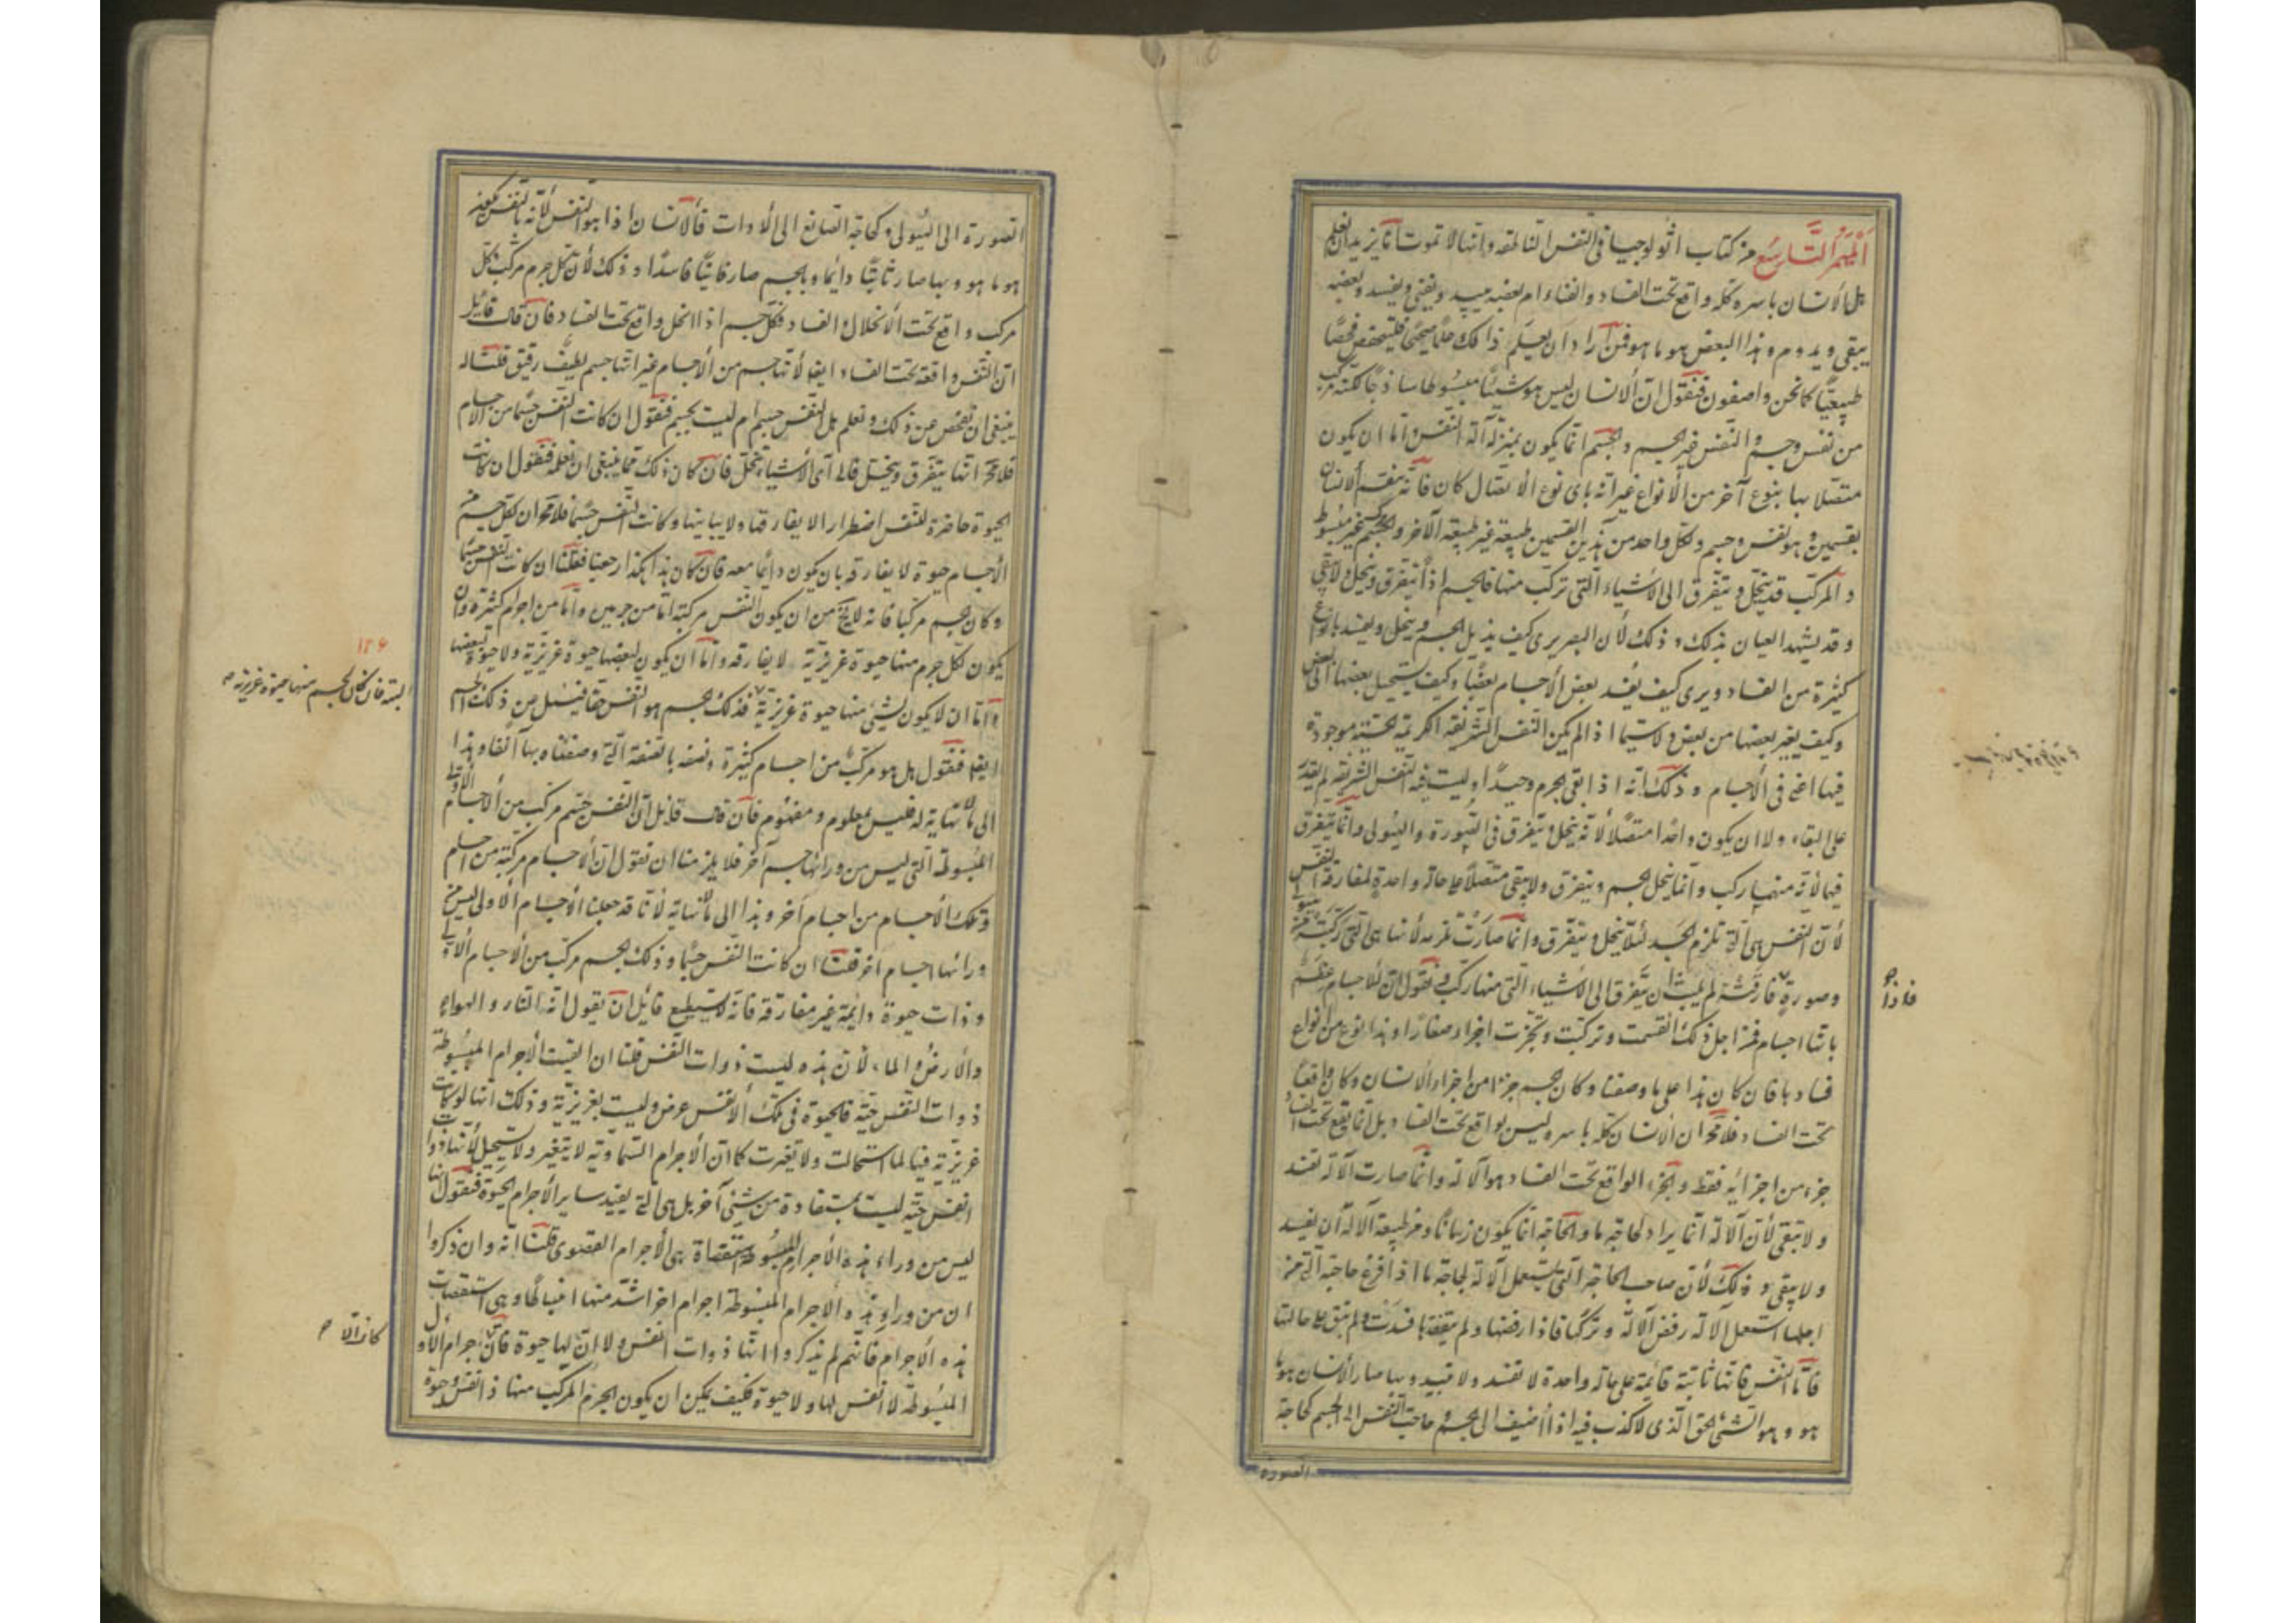 الميمر التاسع من كتاب اثولوجيا فى النفس الناطقة وانها لا تموت انا نريد ان نعلم
هل الانسان باسره كله واقع تحت الفساد والفناء ام بعضه يبيد ويفنى ويفسد وبعضه
يبقى ويدوم وهذا البعض هو ما هو فمن اراد ان يعلم ذلك علما صحيحا فليفحص فحصا
طبيعيا كما نحن واصفون فنقول ان الانسان ليس هو شيئا مبسوطا ساذجا لكنه مركب
من نفس وجسم والنفس غير الجسم والجسم انما يكون بمنزلة آلة النفس واما ان يكون
متصلا بها بنوع آخر من الانواع غير انه باى نوع الاتصال كان فانه منقسم الانسان
بقسمين وهو نفس وجسم ولكل واحد من هذين القسمين طبيعة غير طبيعة الآخر والجسم غير مبسوط
والمركب قد ينحل ويتفرق الى الاشياء التى تركب منها فالجسم اذا يتفرق وينحل ولا يبقى
وقد يشهد العيان بذلك وذلك لان البصر يرى كيف يذبل الجسم وينحل ويفسد بانواع
كثيرة من الفساد ويرى كيف يفسد بعض الاجسام بعضا وكيف يستحيل بعضها الى بعض
وكيف يغير بعضها من بعض ولا سيما اذا لم يكن النفس الشريفة الكريمة الحية موجودة
فيها اعنى فى الاجسام وذلك انه اذا بقى الجرم وحيدا وليست فيه النفس الشريفة لم يقدر
على البقاء ولا ان يكون واحدا متصلا لانه ينحل ويتفرق فى الصورة والهيولى وانما يتفرق
فيهما لانه منهما ركب وانما ينحل الجسم ويتفرق ولا يبقى متصلا على حالة واحدة لمفارقة النفس
لان النفس هى التى تلزم الجسد لئلا ينحل ويتفرق وانما صارت تلزمه لانها هى التى ركبته من هيولى
وصورة فارقته لم يلبث ان يتفرق الى الاشياء التى منها ركب ونقول ان للاجسام عظم
بانها اجسام فمن اجل ذلك انقسمت وتركبت وتجزت اجزاء صغارا وهذا نوع من انواع
فسادها فان كان هذا على ما وصفنا وكان الجسم جزءا من اجزاء الانسان وكان واقعا
تحت الفساد فلا محة ان الانسان كله باسره ليس بواقع تحت الفساد بل انما يقع تحت الفساد
جزء من اجزائه فقط والجزء الواقع تحت الفساد هو الآلة وانما صارت الآلة تفسد
ولا تبقى لان الآلة انما يراد لحاجة ما والحاجة انما يكون زمانا ومن طبيعة الآلة ان يفسد
ولا يبقى وذلك لان صاحب الحاجة التى يستعمل الآلة لحاجة ما اذا فرغ حاجته التى من
اجلها استعمل الآلة رفض الآلة وتركها فاذا رفضها ولم يتفقدها فسدت ولم تبق على حالتها
فاما النفس فانها ثابتة قائمة على حالة واحدة لا تفسد ولا تبيد وبها صار الانسان هو ما
هو وهو الشىء الحق الذى لا كذب فيه اذا اضيف الى الجسم وحاجة النفس الى الجسم كحاجة
الصورة
فاذا
الصورة الى الهيولى وكحاجة الصانع الى الادوات فالانسان اذا هو النفس لانه بالنفس يكون
هو ما هو وبها صار ثابتا دائما وبالجسم صار فانيا فاسدا وذلك لان كل جرم مركب وكل
مركب واقع تحت الانحلال والفساد فكل جسم اذا انحل واقع تحت الفساد فان قال قائل
ان النفس واقعة تحت الفساد ايضا لانها جسم من الاجسام غير انها جسم لطيف رقيق قلنا له
ينبغى ان نفحص عن ذلك ونعلم هل النفس جسم ام ليست بجسم فنقول ان كانت النفس جسما من الاجسام
فلا محة انها يتفرق وينحل فالى اى الاشياء ينحل فان كان ذلك مما ينبغى ان نعلمه فنقول ان كانت
الحيوة حاضرة للنفس اضطرارا لا يفارقها ولا يباينها وكانت النفس جسما فلا محة ان لكل جسم من
الاجسام حيوة لا يفارقه بان يكون دائما معه فان كان هذا هكذا رجعنا فقلنا ان كانت النفس جسما
وكان الجسم مركبا فانه لا يخ من ان يكون النفس مركبة اما من جرمين واما من اجرام كثيرة وان
يكون لكل جرم منها حيوة غريزية لا يفارقه واما ان يكون لبعضها حيوة غريزية ولا حيوة لبعضها
واما ان لا يكون لشىء منها حيوة غريزية فذلك الجسم هو النفس حقا فنسئل عن ذلك الجسم
ايضا فنقول هل هو مركب من اجسام كثيرة ونصفه بالصفة التى وصفناه بها آنفا وهذا
الى ما لا نهاية له فليس بمعلوم ومفهوم فان قال قائل ان النفس جسم مركب من الاجسام الاولى
المبسوطة التى ليس من ورائها جسم آخر فلا يلزمنا ان نقول ان الاجسام مركبة من اجسام
وتلك الاجسام من اجسام اخر وهذا الى ما لا نهاية لانا قد جعلنا الاجسام الاولى ليس من
ورائها اجسام اخر قلنا ان كانت النفس جسما وذلك الجسم مركب من الاجسام الاولى
وذات حيوة دائمة غير مفارقة فانه لا يستطيع قائل ان يقول انه النار والهواء
والارض والماء لان هذه ليست ذوات النفس قلنا ان الفيت الاجرام المبسوطة
ذوات النفس حية فالحيوة فى تلك الانفس عرض وليست بغريزية وذلك انها لو كانت
غريزية فيها لما استحالت ولا تغيرت كما ان الاجرام السماوية لا يتغير ولا يستحيل لانها ذوات
انفس حية ليست بمستفادة من شىء آخر بل هى التى يفيد ساير الاجرام الحيوة فنقول انه
ليس من وراء هذه الاجرام المبسوطة استقصاة هى الاجرام القصوى قلنا انه وان ذكروا
ان من وراء هذه الاجرام المبسوطة اجرام اخر اشد منها انبساطا وهى استقصات
هذه الاجرام فانهم لم يذكروا انها ذوات انفس ولا ان لها حيوة فان اجرام الاول
المبسوطة لا انفس لها ولا حيوة فكيف يمكن ان يكون الجرم المركب منها ذا نفس وحيوة
١٢۶
البتة فان كان لجسم منها حيوة غريزية